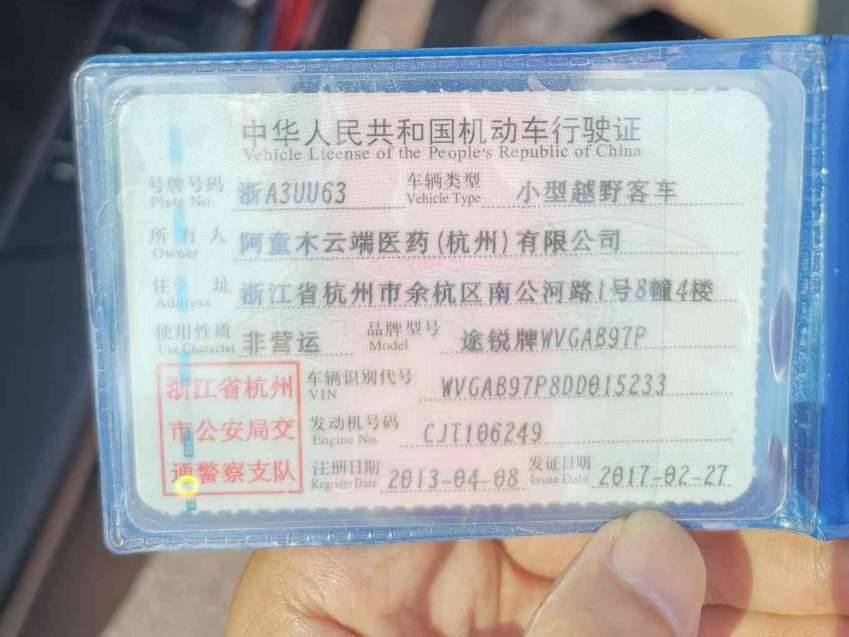 中华人民共和国机动车行驶证
Vehicle License of the People's Republic of China
号牌号码 浙A3UU63 车辆类型 小型越野客车
Plate No. Vehicle Type
所有人 阿童木云端医药(杭州)有限公司
Owner
住址 浙江省杭州市余杭区南公河路1号8幢4楼
Address
使用性质 非营运 品牌型号 途锐牌WVGAB97P
Use Character Model
浙江省杭州
市公安局交
通警察支队
车辆识别代号 WVGAB97P8DD015233
VIN
发动机号码 CJT106249
Engine No.
注册日期 2013-04-08 发证日期 2017-02-27
Register Date Issue Date